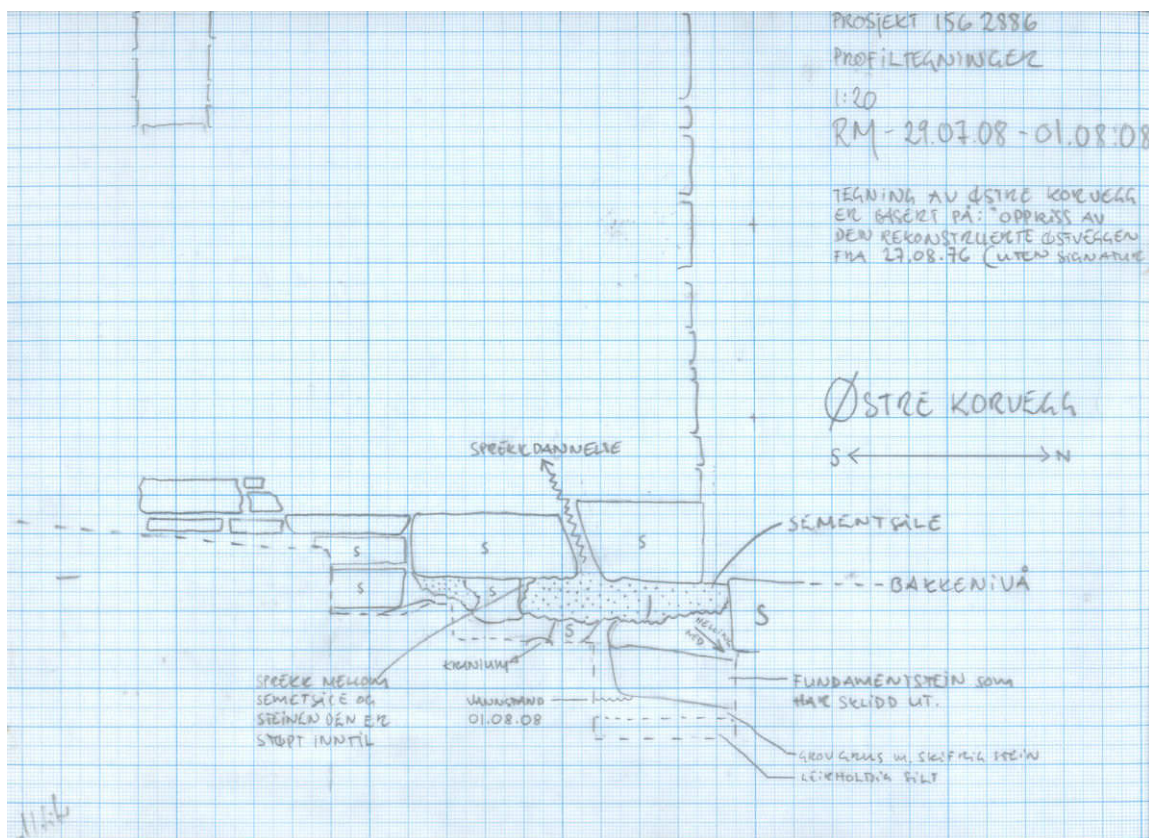 PROSJEKT 1562886
PROFILTEGNINGER
1:20
RM - 29.07.08 - 01.08.08
TEGNING AV ØSTRE KORVEGG
ER BASERT PÅ: "OPPRISS AV
DEN REKONSTRUERTE ØSTVEGGEN
FRA 27.08.76 (UTEN SIGNATUR
ØSTRE KORVEGG
S N
SPREKKDANNELSE
SEMENTSÅLE
BAKKENIVÅ
S
S
S
S
S
S
S
HELLING
NED
KRANIUM
SPREKK MELLOM
SEMETSÅLE OG
STEINEN DEN ER
STØPT INNTIL
VANNSTAND
01.08.08
FUNDAMENTSTEIN SOM
HAR SKLIDD UT.
GROV GRUS M. SKIFRIG STEIN
LEIRHOLDIG SILT